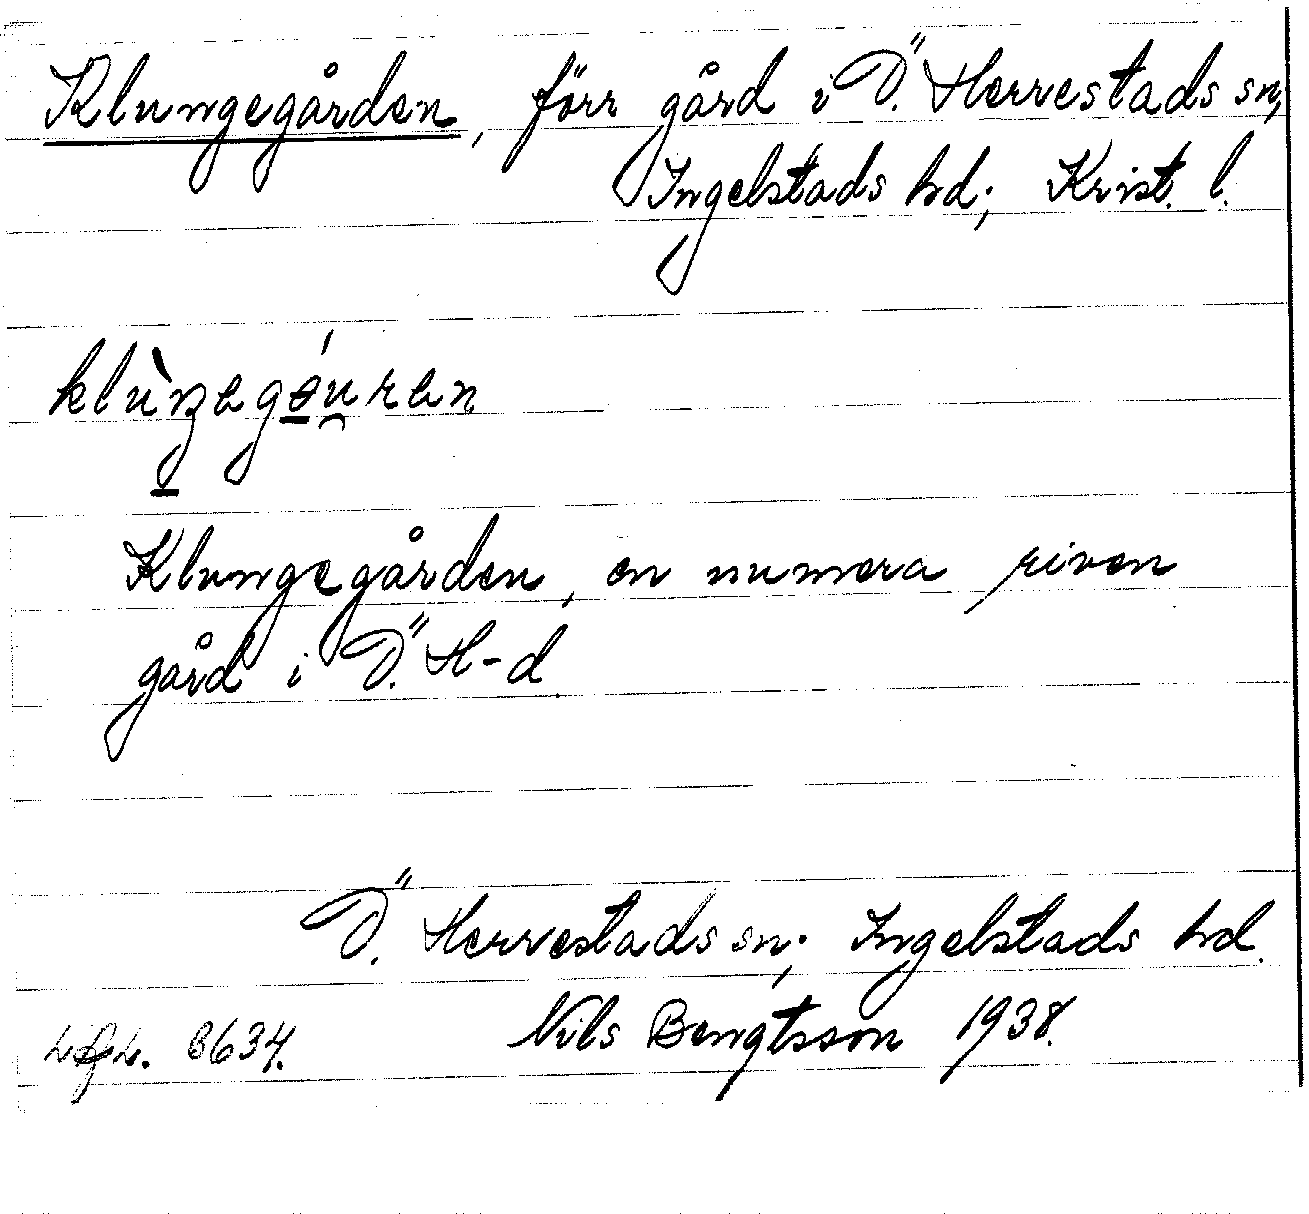 Klungegården, förr gård i Ö. Herrestads sn,
Ingelstads hd; Krist. l.
klùŋegǝ́u̯ren
Klungegården, en numera riven
gård i Ö. H-d
Ö. Herrestads sn; Ingelstads hd.
Nils Bengtsson 1938.
3634.